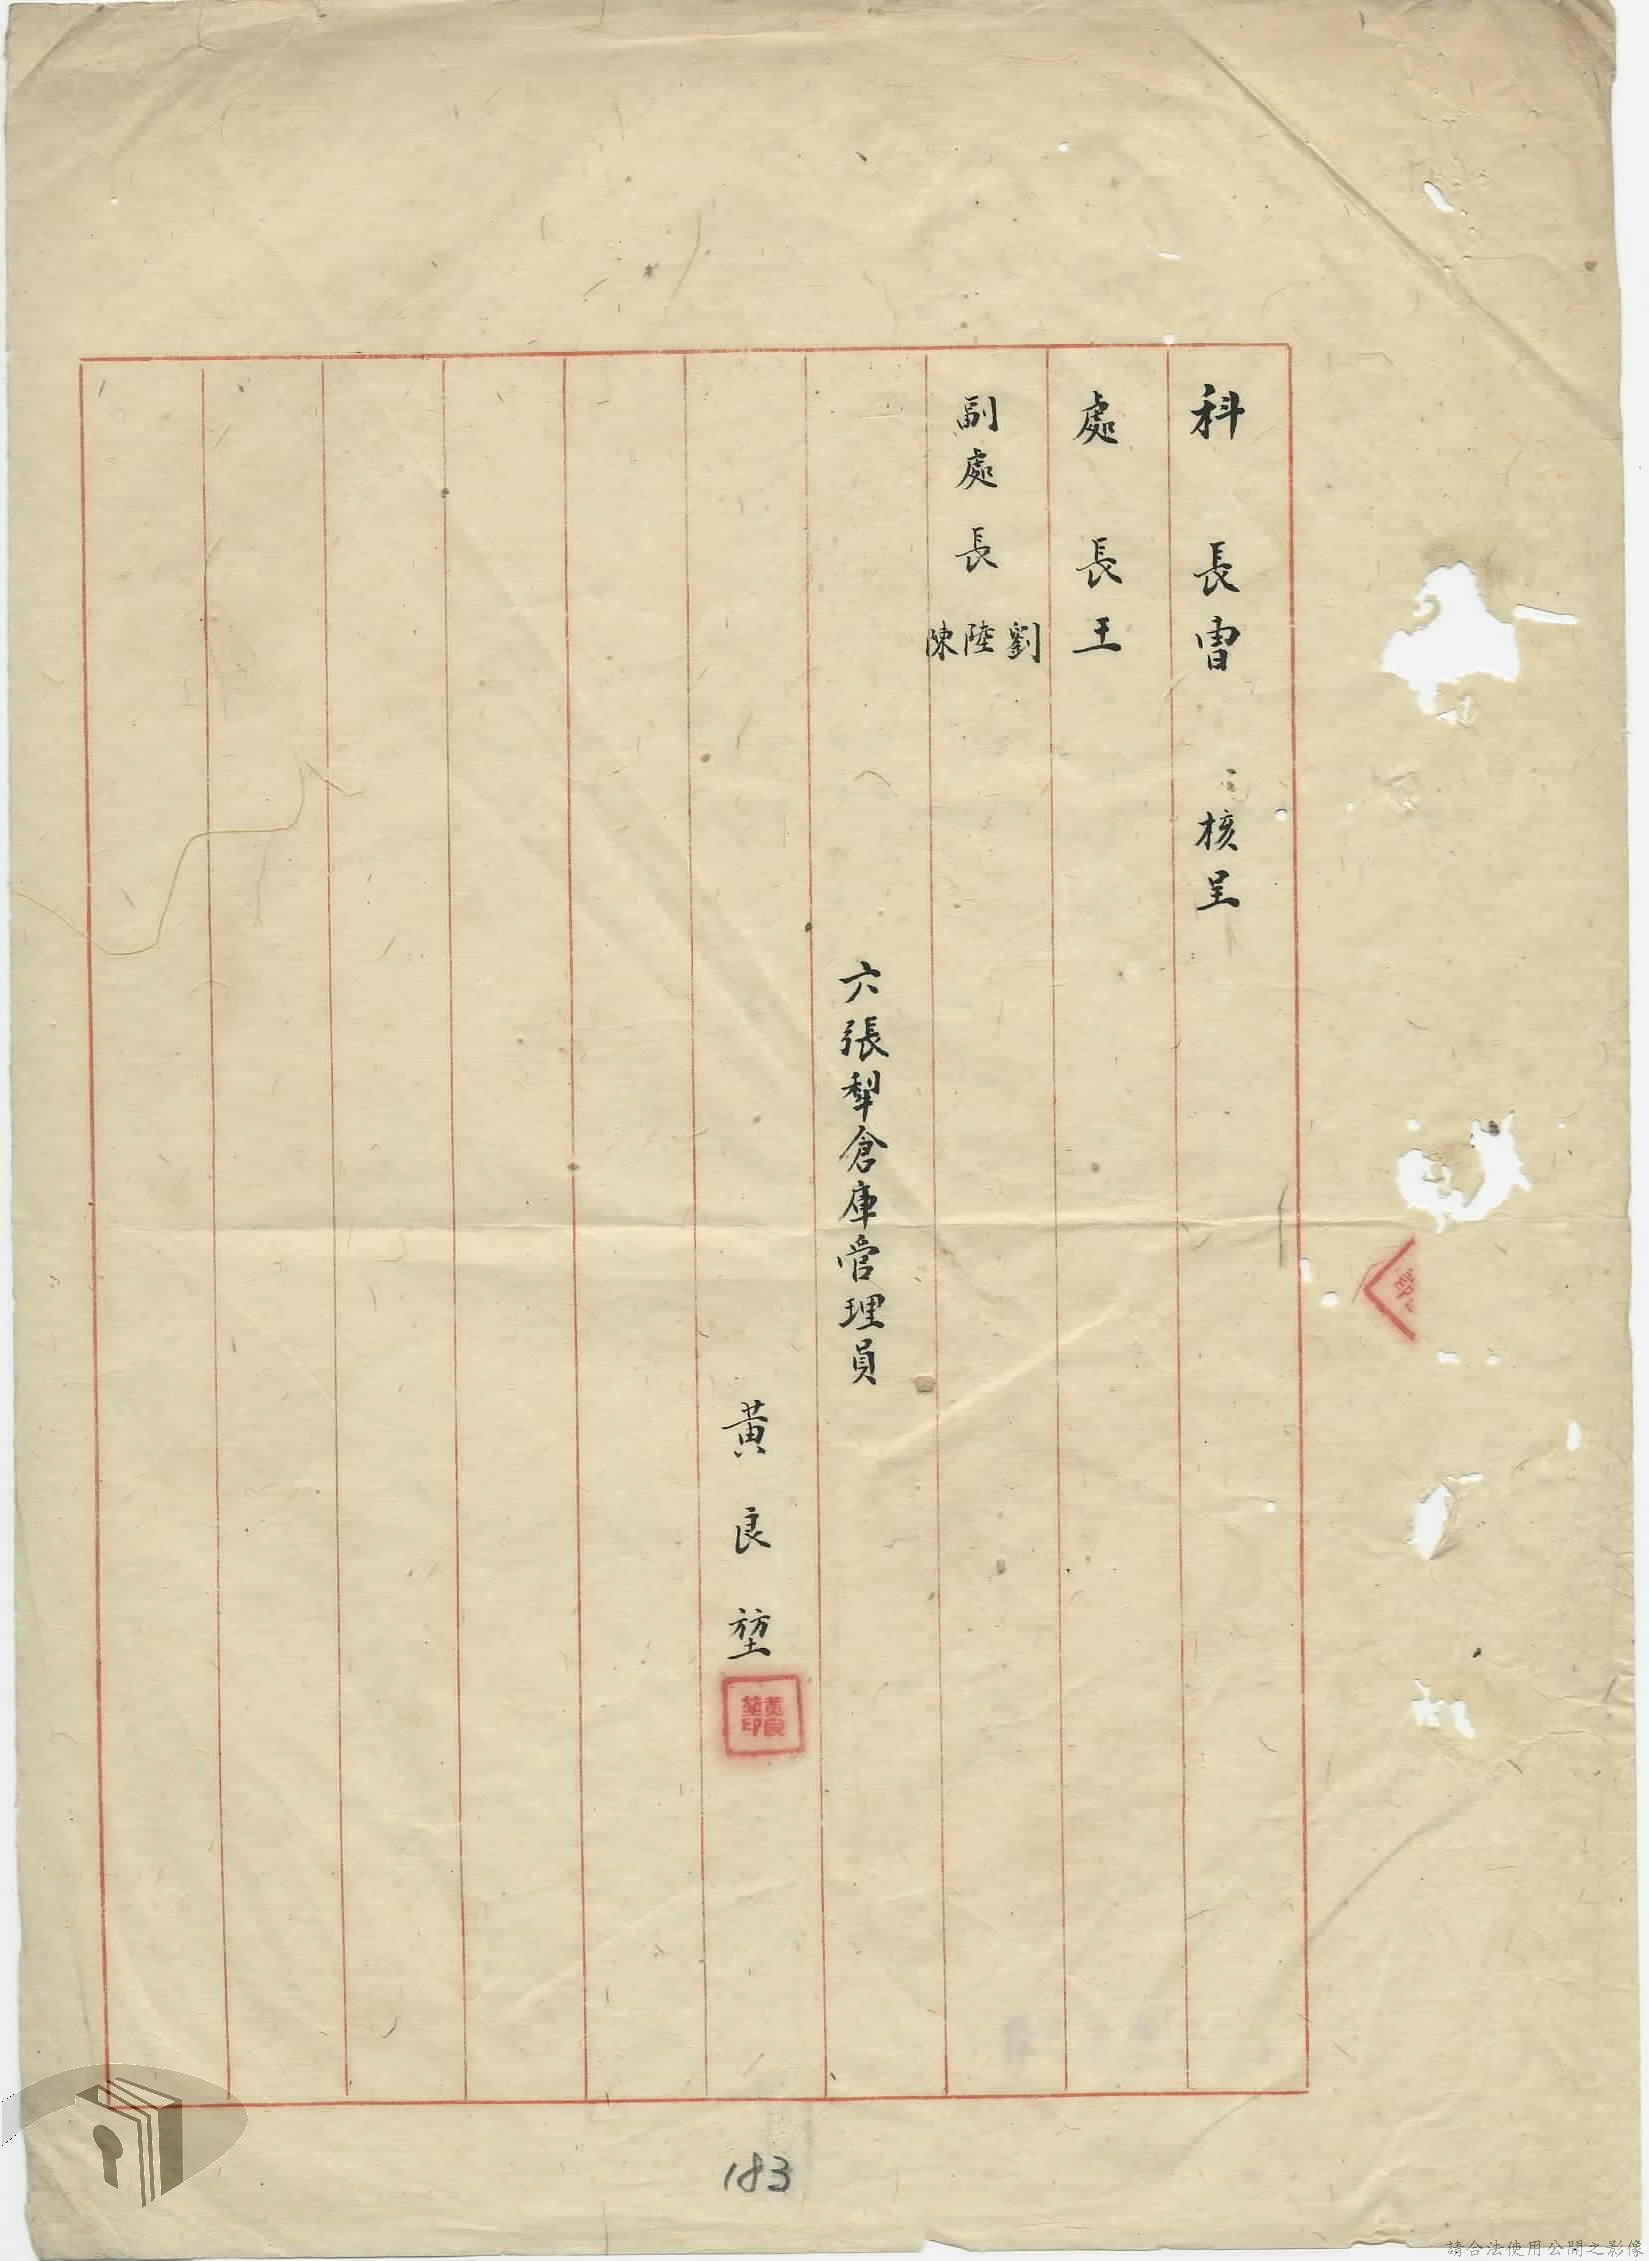 科長曹 核呈
處長王
副處長劉陸陳
六張犁倉庫管理員
黃良堃
黃良堃印
183
請合法使用公開之影像